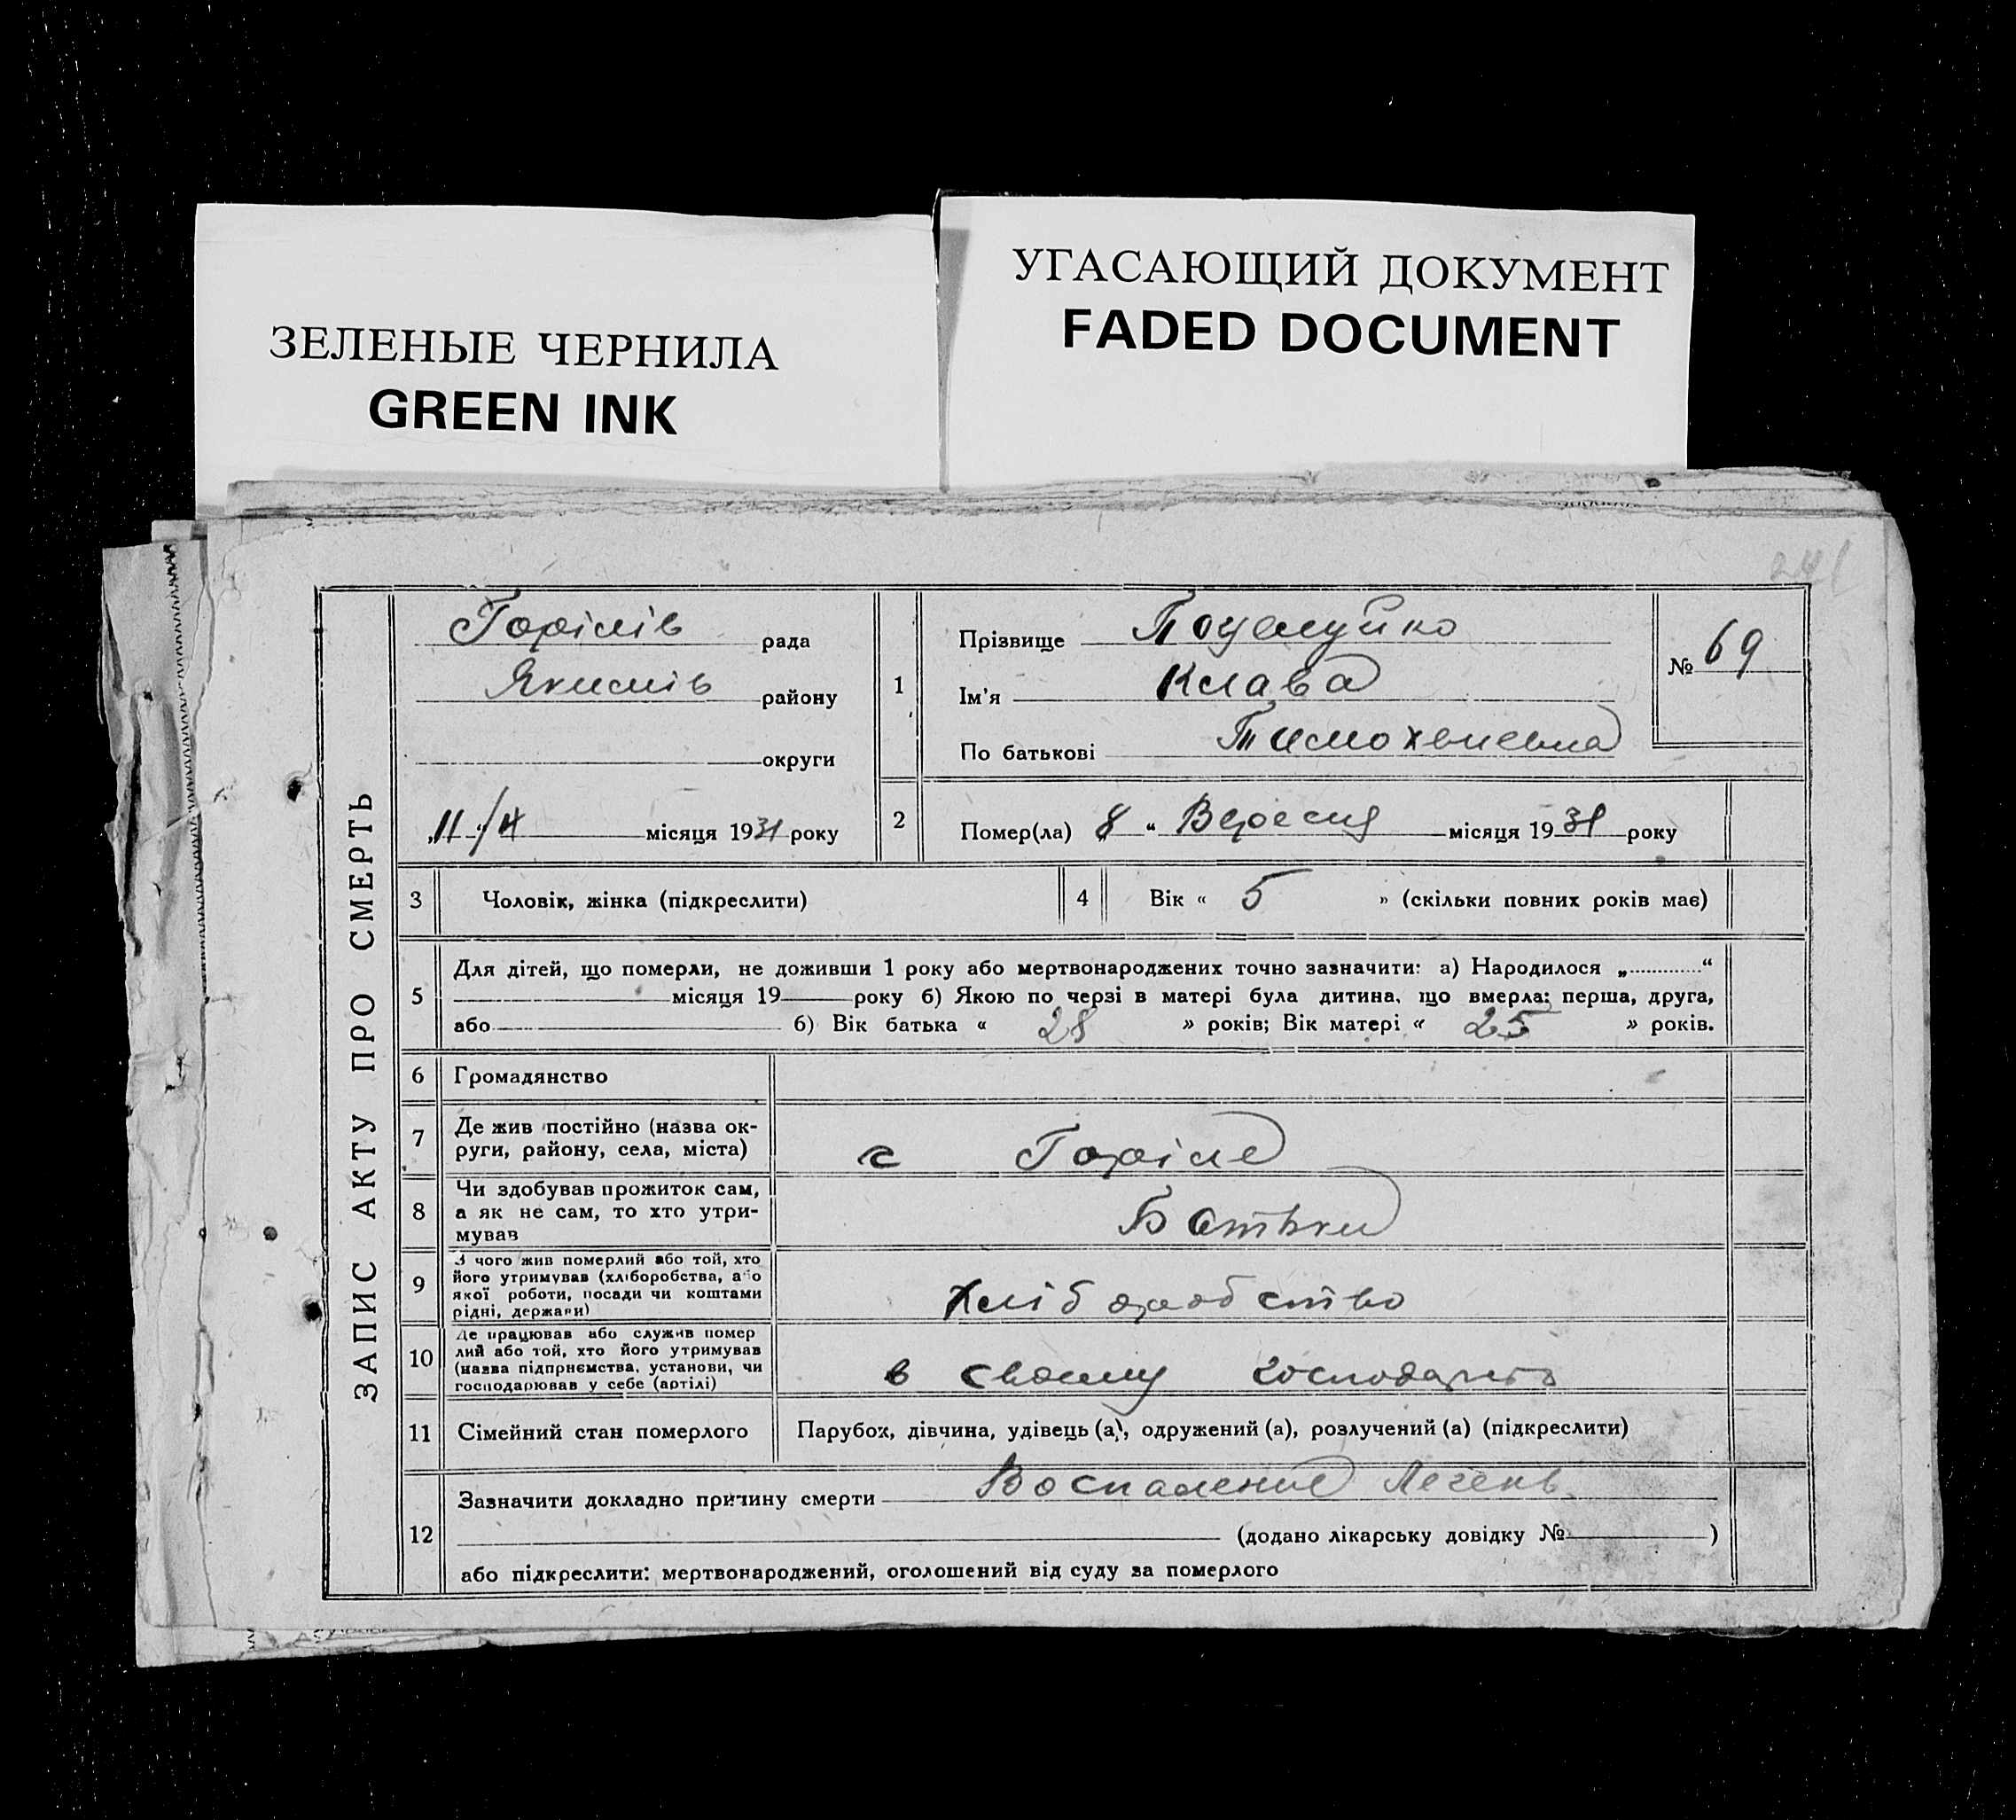 ЗЕЛЕНЫЕ ЧЕРНИЛА
GREEN INK
УГАСАЮЩИЙ ДОКУМЕНТ
FADED DOCUMENT
ЗАПИС АКТУ ПРО СМЕРТЬ
Горілів рада
Якимів району
округи
місяця 1931 року
1
Прізвище Поцелуйко
Ім'я Клава
По батькові
№ 69
2
Помер(ла) 8 “ Вересня місяця 1931 року
3 Чоловік, жінка (підкреслити)
4 Вік « 5 » (скільки повних років має)
5 Для дітей, що померли, не доживши 1 року або мертвонароджених точно зазначити: а) Народилося „ “
місяця 19 року б) Якою по черзі в матері була дитина, що вмерла: перша, друга,
або б) Вік батька « 28 » років; Вік матері « 25 » років.
6 Громадянство
7 Де жив постійно (назва ок-
руги, району, села, міста)
с Горіле
8 Чи здобував прожиток сам,
а як не сам, то хто утри-
мував
Батьки
9 З чого жив померлий або той, хто
його утримував (хліборобства, або
якої роботи, посади чи коштами
рідні, держави)
Хліборобство
10 Де працював або служив помер
лий або той, хто його утримував
(назва підприємства, установи, чи
господарював у себе (артілі)
в своему
11 Сімейний стан померлого
Парубок, дівчина, удівець (а), одружений (а), розлучений (а) (підкреслити)
12 Зазначити докладно причину смерти Воспаление Легень
(додано лікарську довідку № )
або підкреслити: мертвонароджений, оголошений від суду за померлого